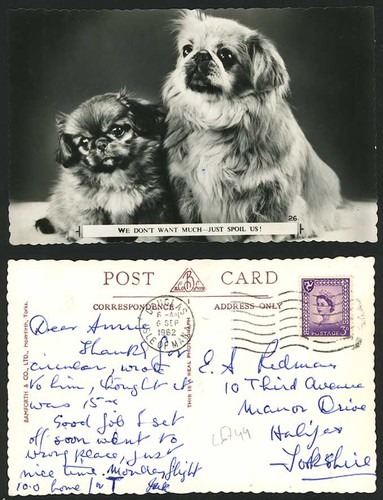 WE DON'T WANT MUCH—JUST SPOIL US!
26
POST CARD
CORRESPONDENCE
ADDRESS ONLY
BAMFORTH & CO., LTD.,
THIS IS A REAL PHOTOGRAPH
DOUGLAS
6 - AM
6 SEP
1962
ISLE OF MAN
POSTAGE
3D
Dear Annie
Thanks for
circular, wrote
to him, thought it
was 15-
Good job I set
off soon went to
wrong place, just
nice time. Monday flight
10.0 home
E. A. Redman
10 Third Avenue
Manor Drive
Halifax
Yorkshire